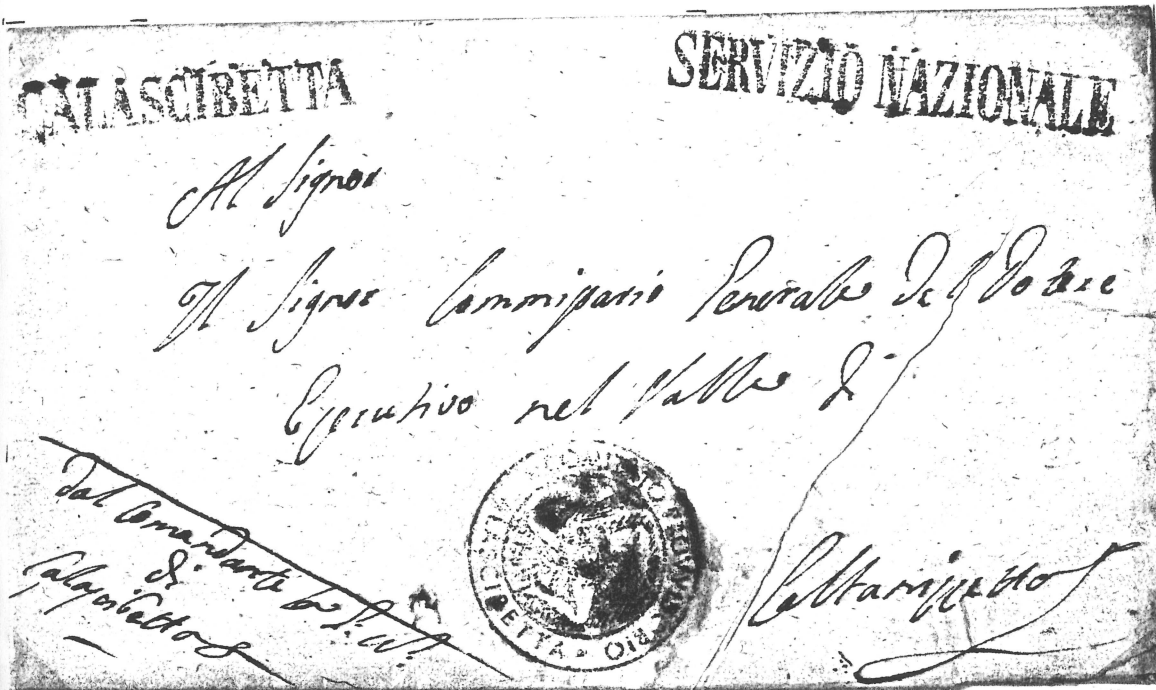 CALASCIBETTA
SERVIZIO NAZIONALE
Al Signor
Il Signor Commissario Generale del Potere
Esecutivo nel Valle di
Caltanissetta
dal Comandante
di
Calascibetta
CALASCIBETTA